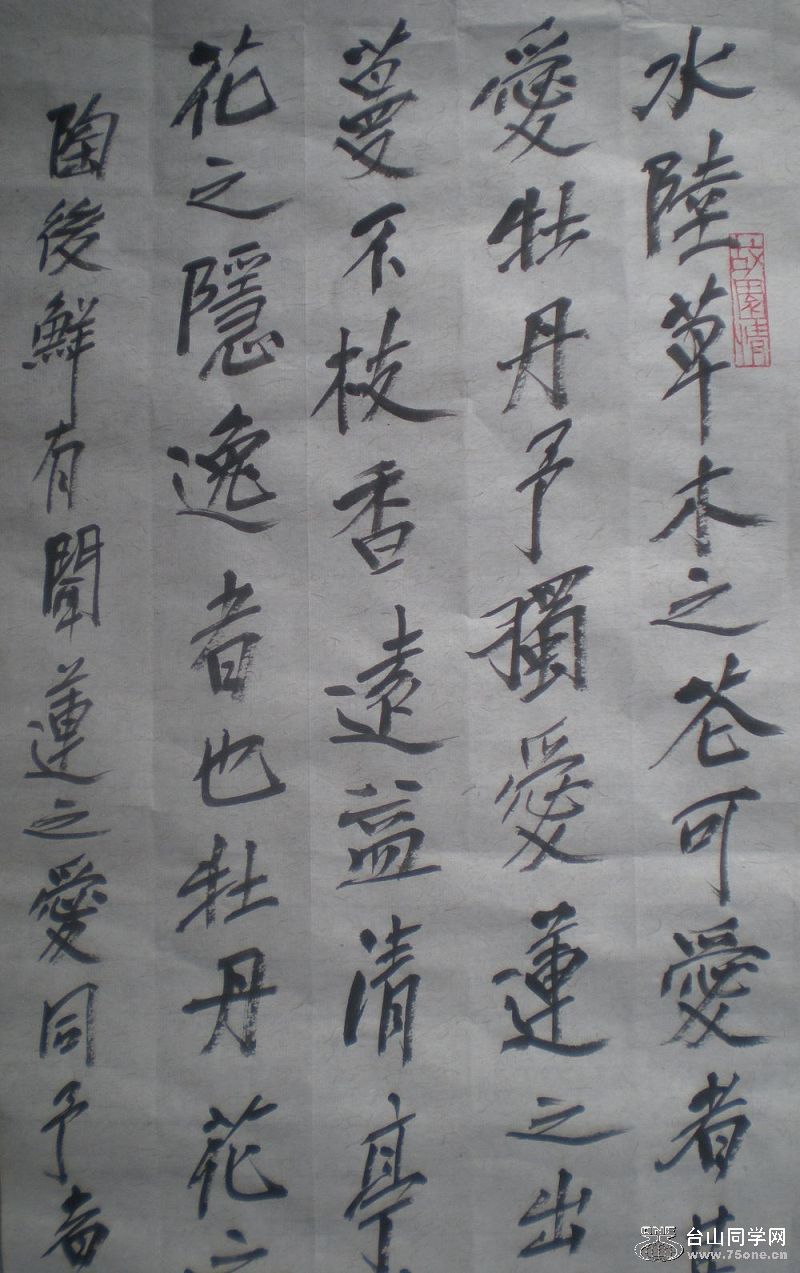 水陸草木之花可愛者甚
愛牡丹予獨愛蓮之出
蔓不枝香遠益清亭
花之隱逸者也牡丹花之
陶後鮮有聞蓮之愛同予者
故園情
台山同学网
www.75one.cn
ONE